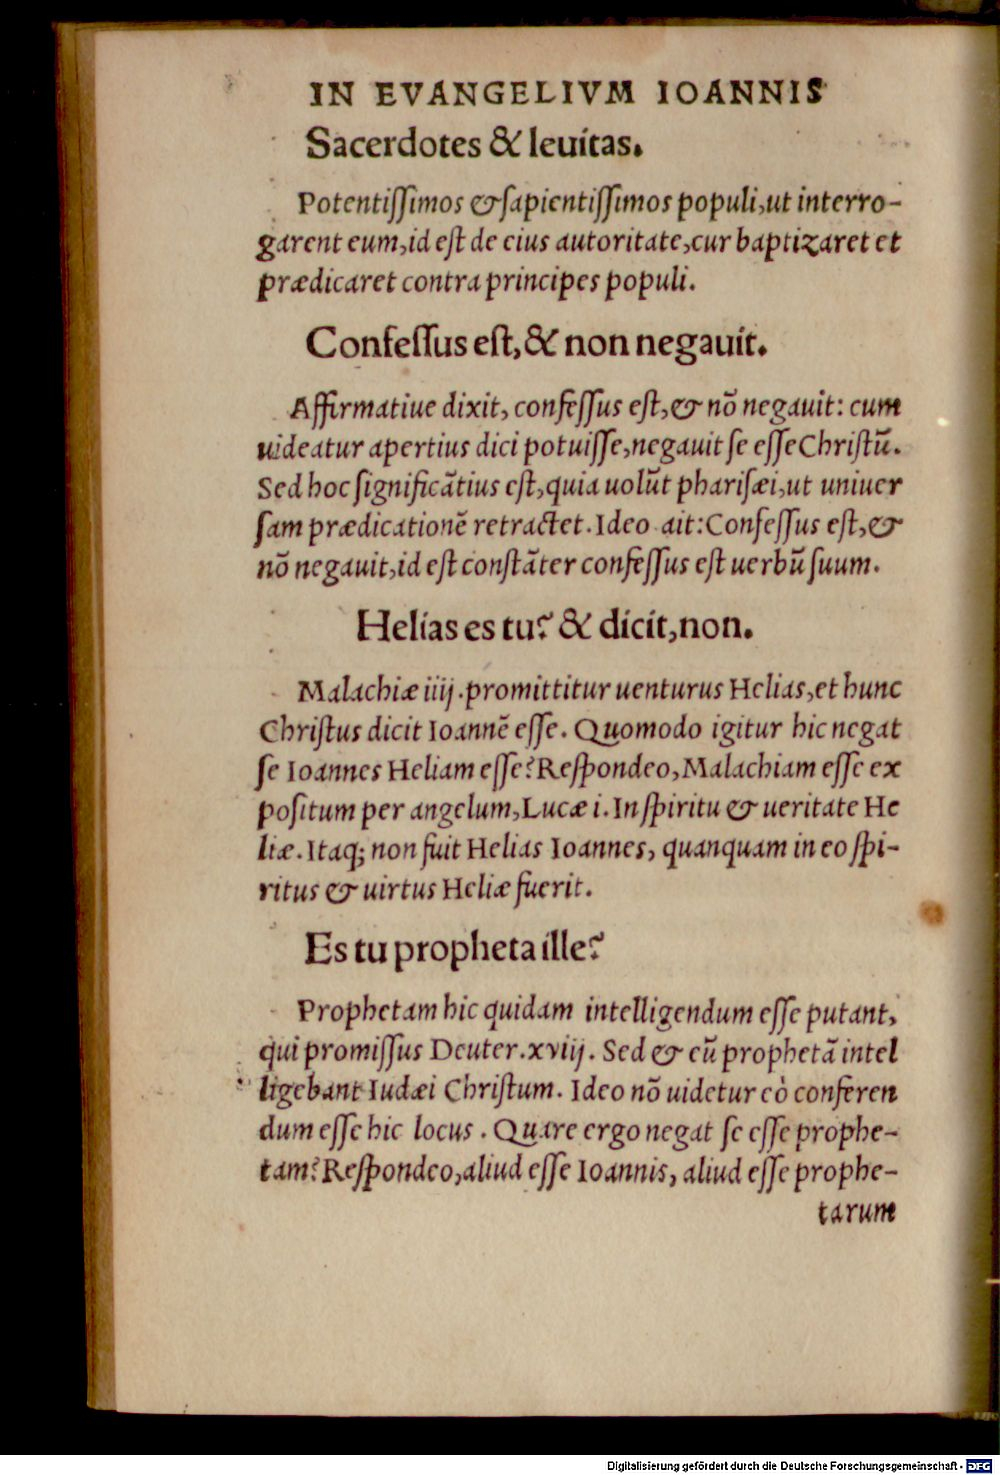 IN EVANGELIVM IOANNIS
Sacerdotes & leuitas.
Potentiſſimos & ſapientiſſimos populi, ut interro-
garent eum, id eſt de eius autoritate, cur baptizaret et
prædicaret contra principes populi.
Confeſſus eſt, & non negauit.
Affirmatiue dixit, confeſſus eſt, & nõ negauit: cum
uideatur apertius dici potuiſſe, negauit ſe eſſe Chriſtũ.
Sed hoc ſignificãtius eſt, quia uolũt phariſæi, ut uniuer
ſam prædicationẽ retractet. Ideo ait: Confeſſus eſt, &
nõ negauit, id eſt conſtãter confeſſus eſt uerbũ ſuum.
Helias es tu? & dicit, non.
Malachiæ iiij. promittitur uenturus Helias, et hunc
Chriſtus dicit Ioannẽ eſſe. Quomodo igitur hic negat
ſe Ioannes Heliam eſſe? Reſpondeo, Malachiam eſſe ex
poſitum per angelum, Lucæ i. In ſpiritu & ueritate He
liæ. Itaq; non fuit Helias Ioannes, quanquam in eo ſpi-
ritus & uirtus Heliæ fuerit.
Es tu propheta ille?
Prophetam hic quidam intelligendum eſſe putant,
qui promiſſus Deuter. xviij. Sed & eũ prophetã intel
ligebant Iudæi Chriſtum. Ideo nõ uidetur eò conferen
dum eſſe hic locus. Quare ergo negat ſe eſſe prophe-
tam? Reſpondeo, aliud eſſe Ioannis, aliud eſſe prophe-
tarum
Digitalisierung gefördert durch die Deutsche Forschungsgemeinschaft - DFG